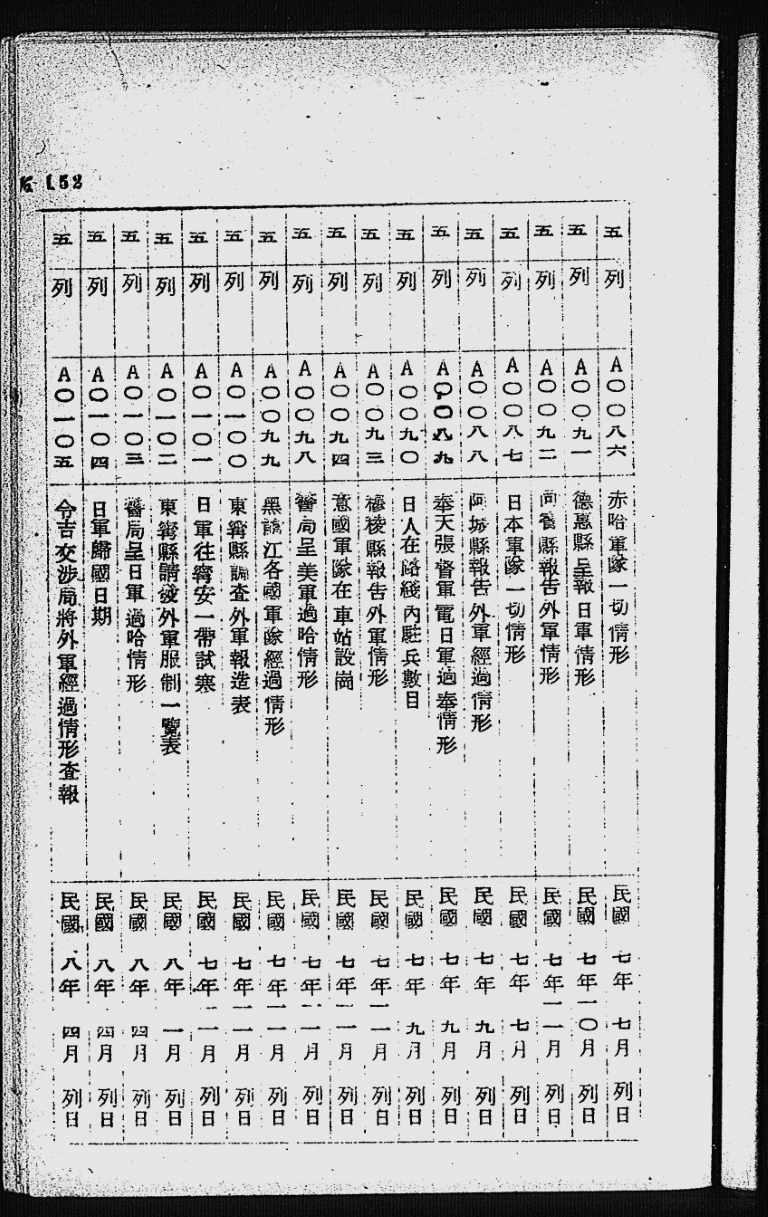 152
五 列 A〇〇八六 赤哈軍隊一切情形 民國七年七月 列日
五 列 A〇〇九一 德惠縣呈報日軍情形 民國七年一〇月 列日
五 列 A〇〇九二 縣報告外軍情形 民國七年一一月 列日
五 列 A〇〇八七 日本軍隊一切情形 民國七年七月 列日
五 列 A〇〇八八 阿城縣報告外軍經過情形 民國七年九月 列日
五 列 A〇〇八九 奉天張督軍電日軍過奉情形 民國七年九月 列日
五 列 A〇〇九〇 日人在路綫內駐兵數目 民國七年九月 列日
五 列 A〇〇九三 穆稜縣報告外軍情形 民國七年一一月 列日
五 列 A〇〇九四 意國軍隊在車站設崗 民國七年一一月 列日
五 列 A〇〇九八 警局呈美軍過哈情形 民國七年一一月 列日
五 列 A〇〇九九 黑龍江各國軍隊經過情形 民國七年一一月 列日
五 列 A〇一〇〇 東甯縣調查外軍報造表 民國七年一一月 列日
五 列 A〇一〇一 日軍往甯安一帶試寒 民國七年一一月 列日
五 列 A〇一〇二 東甯縣請發外軍服制一覽表 民國八年一月 列日
五 列 A〇一〇三 警局呈日軍過哈情形 民國八年四月 列日
五 列 A〇一〇四 日軍歸國日期 民國八年四月 列日
五 列 A〇一〇五 令吉交涉局將外軍經過情形查報 民國八年四月 列日